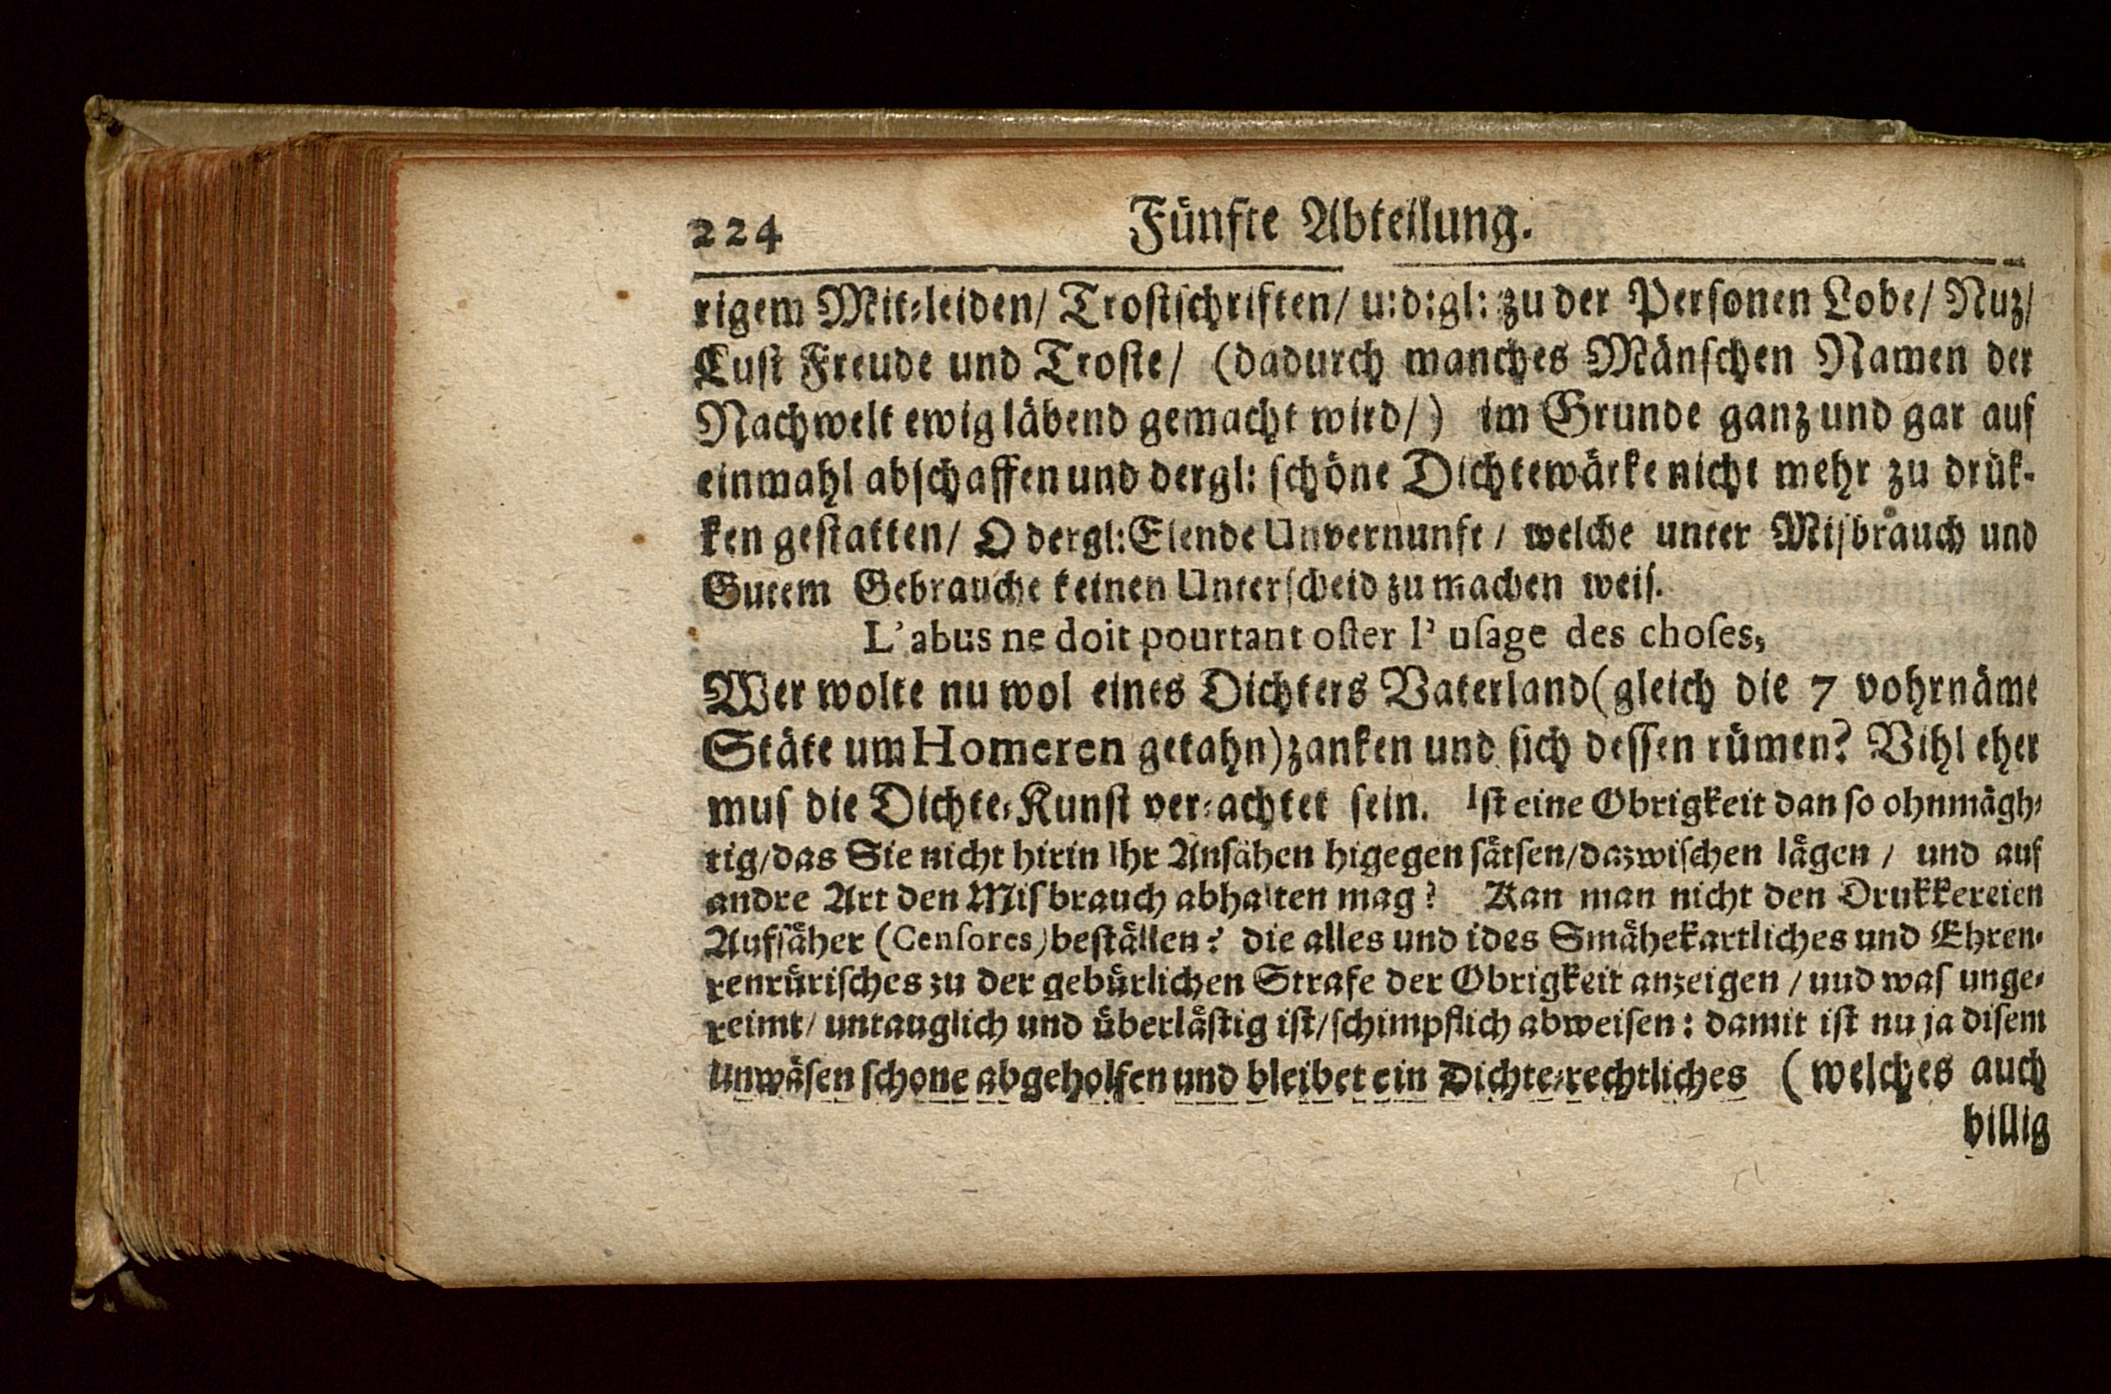 224 Fünfte Abteilung.
rigem Mit⸗leiden/ Trostschriften/ u:d:gl: zu der Personen Lobe/ Nuz/
Lust Freude und Troste/ (dadurch manches Mänschen Namen der
Nachwelt ewig läbend gemacht wird/) im Grunde ganz und gar auf
einmahl abschaffen und dergl: schöne Dichtewärke nicht mehr zu drük-
ken gestatten/ O dergl: Elende Unvernunft/ welche unter Misbrauch und
Gutem Gebrauche keinen Unterscheid zu machen weis.
L'abus ne doit pourtant oster l' usage des choses,
Wer wolte nu wol eines Dichters Vaterland (gleich die 7 vohrnäme
Stäte um Homeren getahn) zanken und sich dessen rümen? Vihl eher
mus die Dichte⸗Kunst ver⸗achtet sein. Ist eine Obrigkeit dan so ohnmägh⸗
tig/ das Sie nicht hirin Ihr Ansähen higegen sätsen/ dazwischen lägen/ und auf
andre Art den Misbrauch abhalten mag? Kan man nicht den Drukkereien
Aufsäher (Censores) beställen? die alles und ides Smähekartliches und Ehren⸗
renrürisches zu der gebürlichen Strafe der Obrigkeit anzeigen/ und was unge⸗
reimt/ untauglich und überlästig ist/ schimpflich abweisen: damit ist nu ja disem
Unwäsen schone abgeholfen und bleibet ein Dichte⸗rechtliches (welches auch
billig